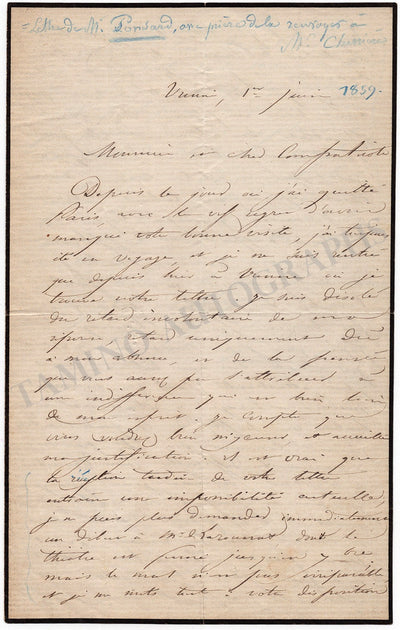 = Lettre de M. Ponsard, avec prière de la renvoyer à
M.
1er juin 1859.
Monsieur et cher Compatriote
Depuis le jour où j'ai quitté
Paris avec le vif regret d'avoir
manqué votre bonne visite, j'ai toujours
été en voyage, et je ne suis rentré
que depuis hier à Vienne où je
trouve votre lettre. Je suis désolé
du retard involontaire de ma
réponse, dû uniquement
à mon absence, et de la pensée
que vous avez pu l'attribuer à
une indifférence qui est bien loin
de mon esprit. Je compte que
vous voudrez bien m'excuser, et accueillir
ma justification. Il est vrai que
la réception tardive de votre lettre
entraîne une impossibilité actuelle,
je ne puis plus demander immédiatement
un délai à Mr de dont le
théâtre est fermé jusqu'en 7bre
mais le mal n'est pas irréparable
et je me mets tout à votre disposition
TAMINO AUTOGRAPHS